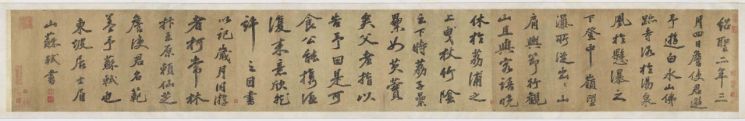 紹聖二年三
月四日詹使君邀
予遊白水山佛
跡寺浴於湯泉
風於懸瀑之
下登中嶺望
瀑所從出出山
肩輿節行觀
山且與客語晚
休於荔浦之
上曳杖竹陰
之下時荔子纍
纍如芡實
矣父老指以
告予曰是可
食公能攜酒
復來意欣然
許之因書
以記歲月同游
者柯常林
抃王原賴仙芝
詹使君名範
蓋予蘇軾也
東坡居士眉
山蘇軾書